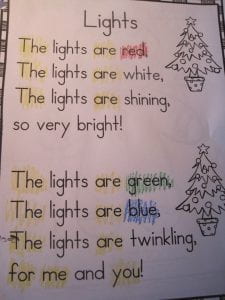 Lights
The lights are red,
The lights are white,
The lights are shining,
so very bright!
The lights are green,
The lights are blue,
The lights are twinkling,
for me and you!